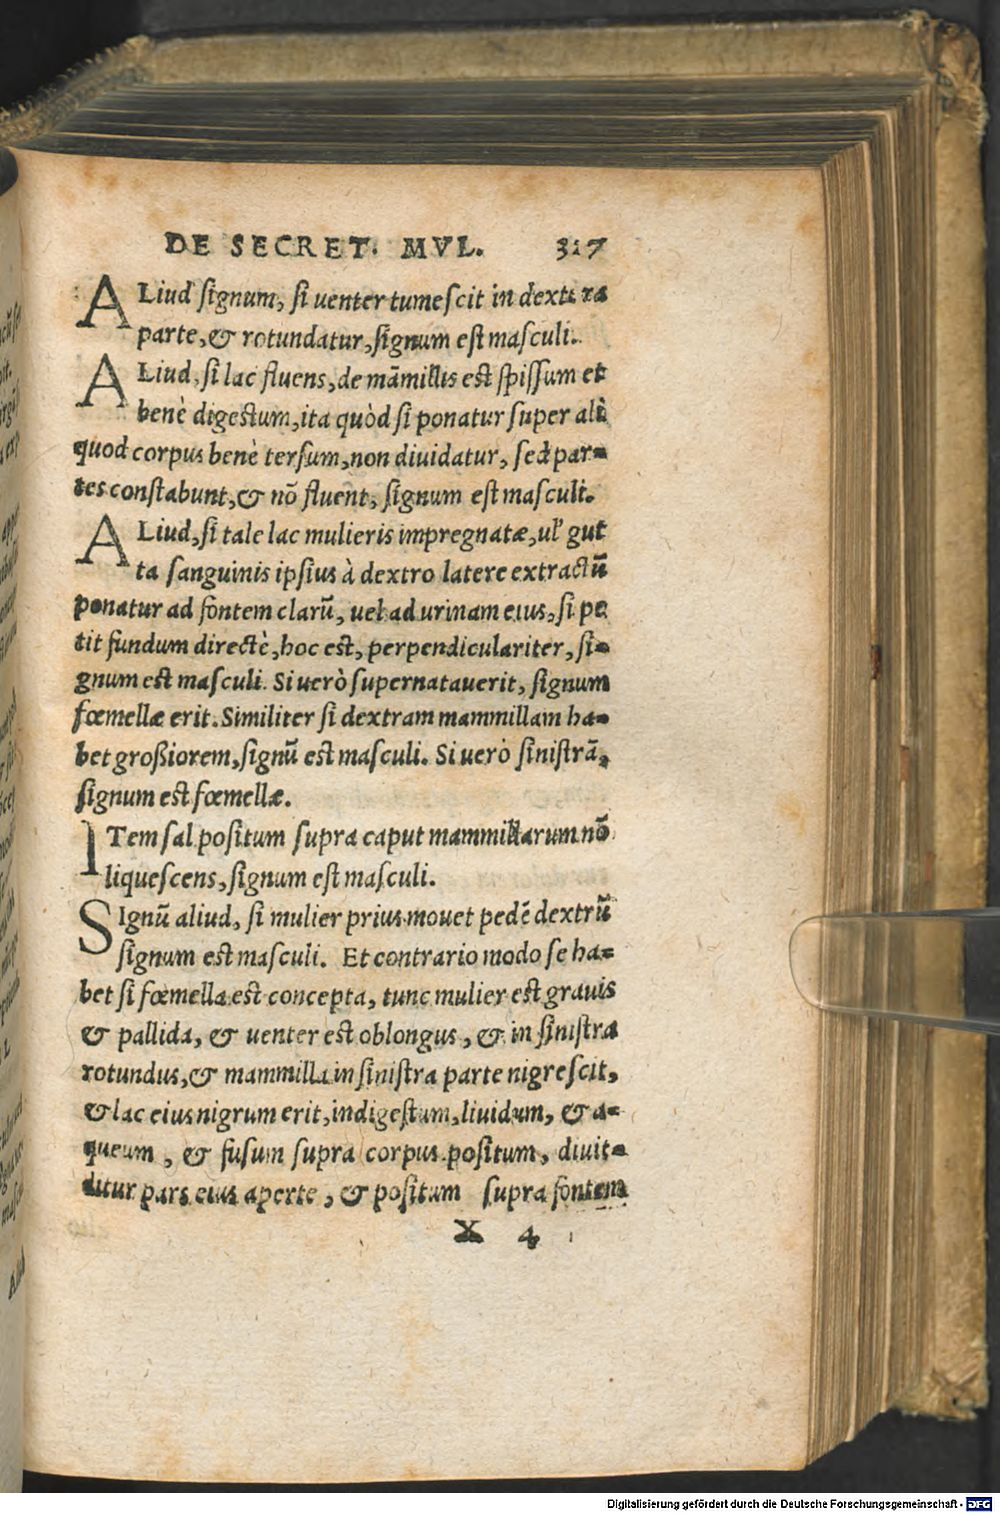 DE SECRET. MVL. 317
ALiud signum, si uenter tumescit in dextera
parte, & rotundatur, signum est masculi.
ALiud, si lac fluens, de mãmillis est spissum et
benè digestum, ita quòd si ponatur super ali
quod corpus benè tersum, non diuidatur, sed par-
tes constabunt, & nõ fluent, signum est masculi.
ALiud, si tale lac mulieris impregnatæ, ul' gut
ta sanguinis ipsius à dextro latere extractũ
ponatur ad fontem clarũ, uel ad urinam eius, si pe
tit fundum directè, hoc est, perpendiculariter, si-
gnum est masculi. Si uerò supernatauerit, signum
fœmellæ erit. Similiter si dextram mammillam ha-
bet großiorem, signũ est masculi. Si uerò sinistrã,
signum est fœmellæ.
ITem sal positum supra caput mammillarum nõ
liquescens, signum est masculi.
SIgnũ aliud, si mulier prius mouet pedẽ dextrũ
signum est masculi. Et contrario modo se ha-
bet si fœmella est concepta, tunc mulier est grauis
& pallida, & uenter est oblongus, & in sinistra
rotundus, & mammilla in sinistra parte nigrescit,
& lac eius nigrum erit, indigestum, liuidum, & a-
queum, & fusum supra corpus positum, diuit-
ditur pars eius aperte, & positum supra fontem
X 4
Digitalisierung gefördert durch die Deutsche Forschungsgemeinschaft - DFG